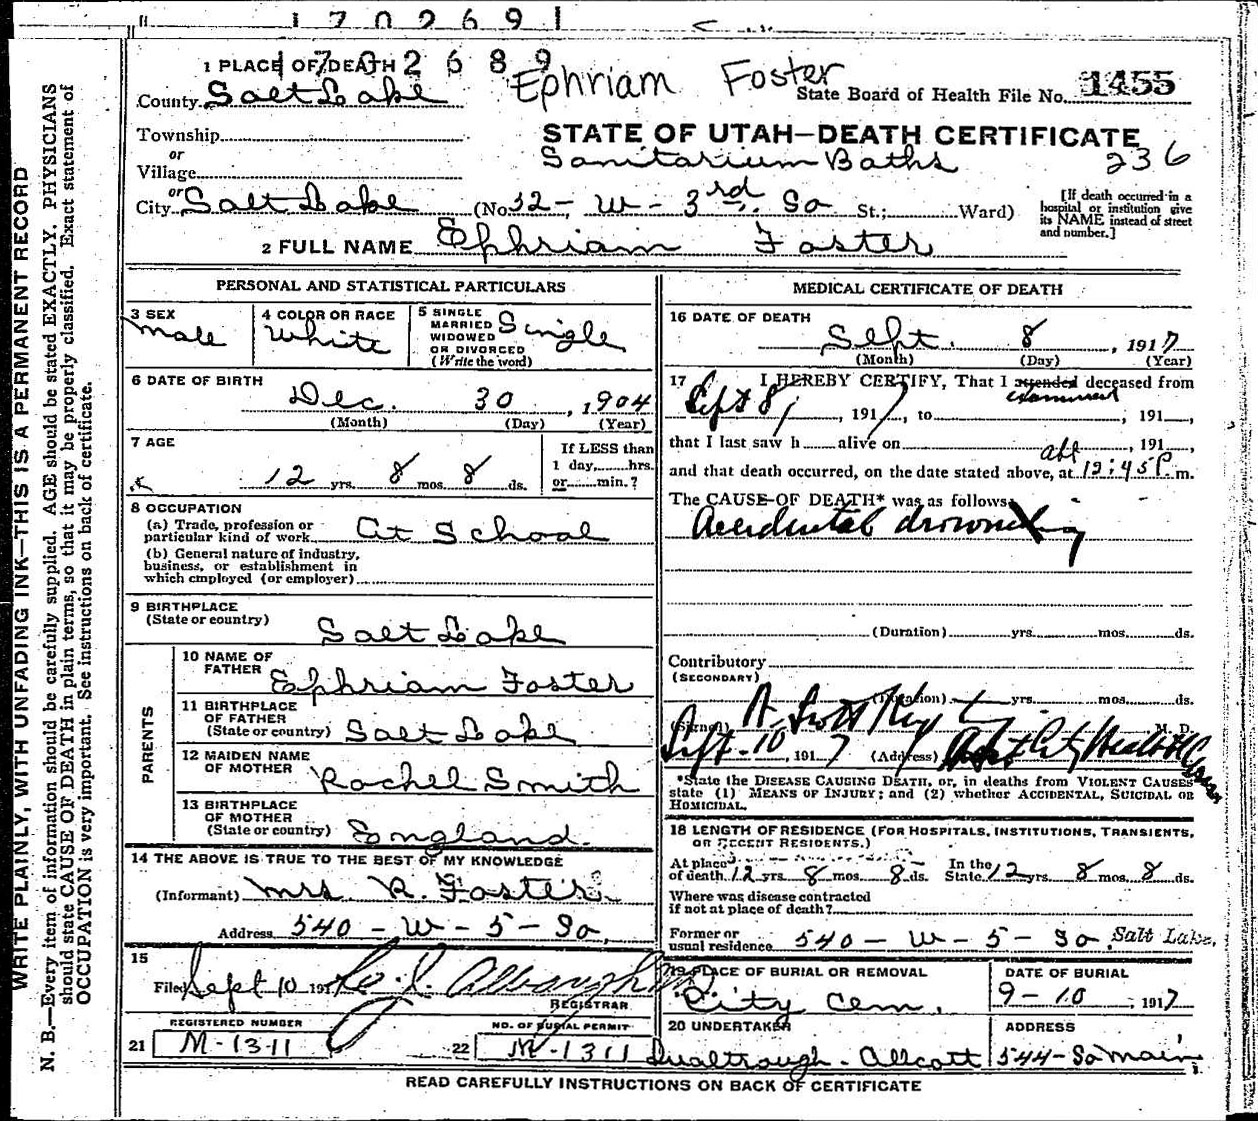 1702691
1702689
Ephriam Foster
1 PLACE OF DEATH
County Salt Lake
State Board of Health File No. 1455
STATE OF UTAH—DEATH CERTIFICATE
Township
or
Village
Sanitarium Baths
236
or
City Salt Lake (No. 32 - W - 3rd. So St.; Ward)
[If death occurred in a
hospital or institution give
its NAME instead of street
and number.]
2 FULL NAME Ephriam Foster
PERSONAL AND STATISTICAL PARTICULARS
3 SEX
male
4 COLOR OR RACE
White
5 SINGLE
MARRIED
WIDOWED
OR DIVORCED
(Write the word)
Single
6 DATE OF BIRTH
Dec. 30, 1904
(Month) (Day) (Year)
7 AGE
12 yrs. 8 mos. 8 ds.
If LESS than
1 day, hrs.
or min.?
8 OCCUPATION
(a) Trade, profession or
particular kind of work At School
(b) General nature of industry,
business, or establishment in
which employed (or employer)
9 BIRTHPLACE
(State or country) Salt Lake
PARENTS
10 NAME OF
FATHER Ephriam Foster
11 BIRTHPLACE
OF FATHER
(State or country) Salt Lake
12 MAIDEN NAME
OF MOTHER Rachel Smith
13 BIRTHPLACE
OF MOTHER
(State or country) England.
14 THE ABOVE IS TRUE TO THE BEST OF MY KNOWLEDGE
(Informant) Mrs R. Foster
Address 540 - W - 5 - So.
15
Filed Sept 10 191
REGISTRAR
REGISTERED NUMBER
21 M-1311
NO. OF BURIAL PERMIT
22 M-1311
MEDICAL CERTIFICATE OF DEATH
16 DATE OF DEATH
Sept. 8, 1917
(Month) (Day) (Year)
17 I HEREBY CERTIFY, That I attended deceased from
examined
Sept 8, 1917, to , 191 ,
that I last saw h alive on , 191 ,
abt
and that death occurred, on the date stated above, at 12:45 P.m.
The CAUSE OF DEATH* was as follows:
Accidental drowning
(Duration) yrs. mos. ds.
Contributory
(SECONDARY)
(Duration) yrs. mos. ds.
(Signed) A. Scott M. D.
Sept-10, 1917 (Address) City Health
*State the DISEASE CAUSING DEATH, or, in deaths from VIOLENT CAUSES
state (1) MEANS OF INJURY; and (2) whether ACCIDENTAL, SUICIDAL OR
HOMICIDAL.
18 LENGTH OF RESIDENCE (FOR HOSPITALS, INSTITUTIONS, TRANSIENTS,
OR RECENT RESIDENTS.)
At place
of death 12 yrs. 8 mos. 8 ds. In the State 12 yrs. 8 mos. 8 ds.
Where was disease contracted
if not at place of death?
Former or
usual residence 540 - W - 5 - So. Salt Lake.
19 PLACE OF BURIAL OR REMOVAL
City Cem.
DATE OF BURIAL
9-10, 1917
20 UNDERTAKER
Allcott
ADDRESS
544-So main
READ CAREFULLY INSTRUCTIONS ON BACK OF CERTIFICATE
WRITE PLAINLY, WITH UNFADING INK—THIS IS A PERMANENT RECORD
N. B.—Every item of information should be carefully supplied. AGE should be stated EXACTLY. PHYSICIANS
should state CAUSE OF DEATH in plain terms, so that it may be properly classified. Exact statement of
OCCUPATION is very important. See instructions on back of certificate.